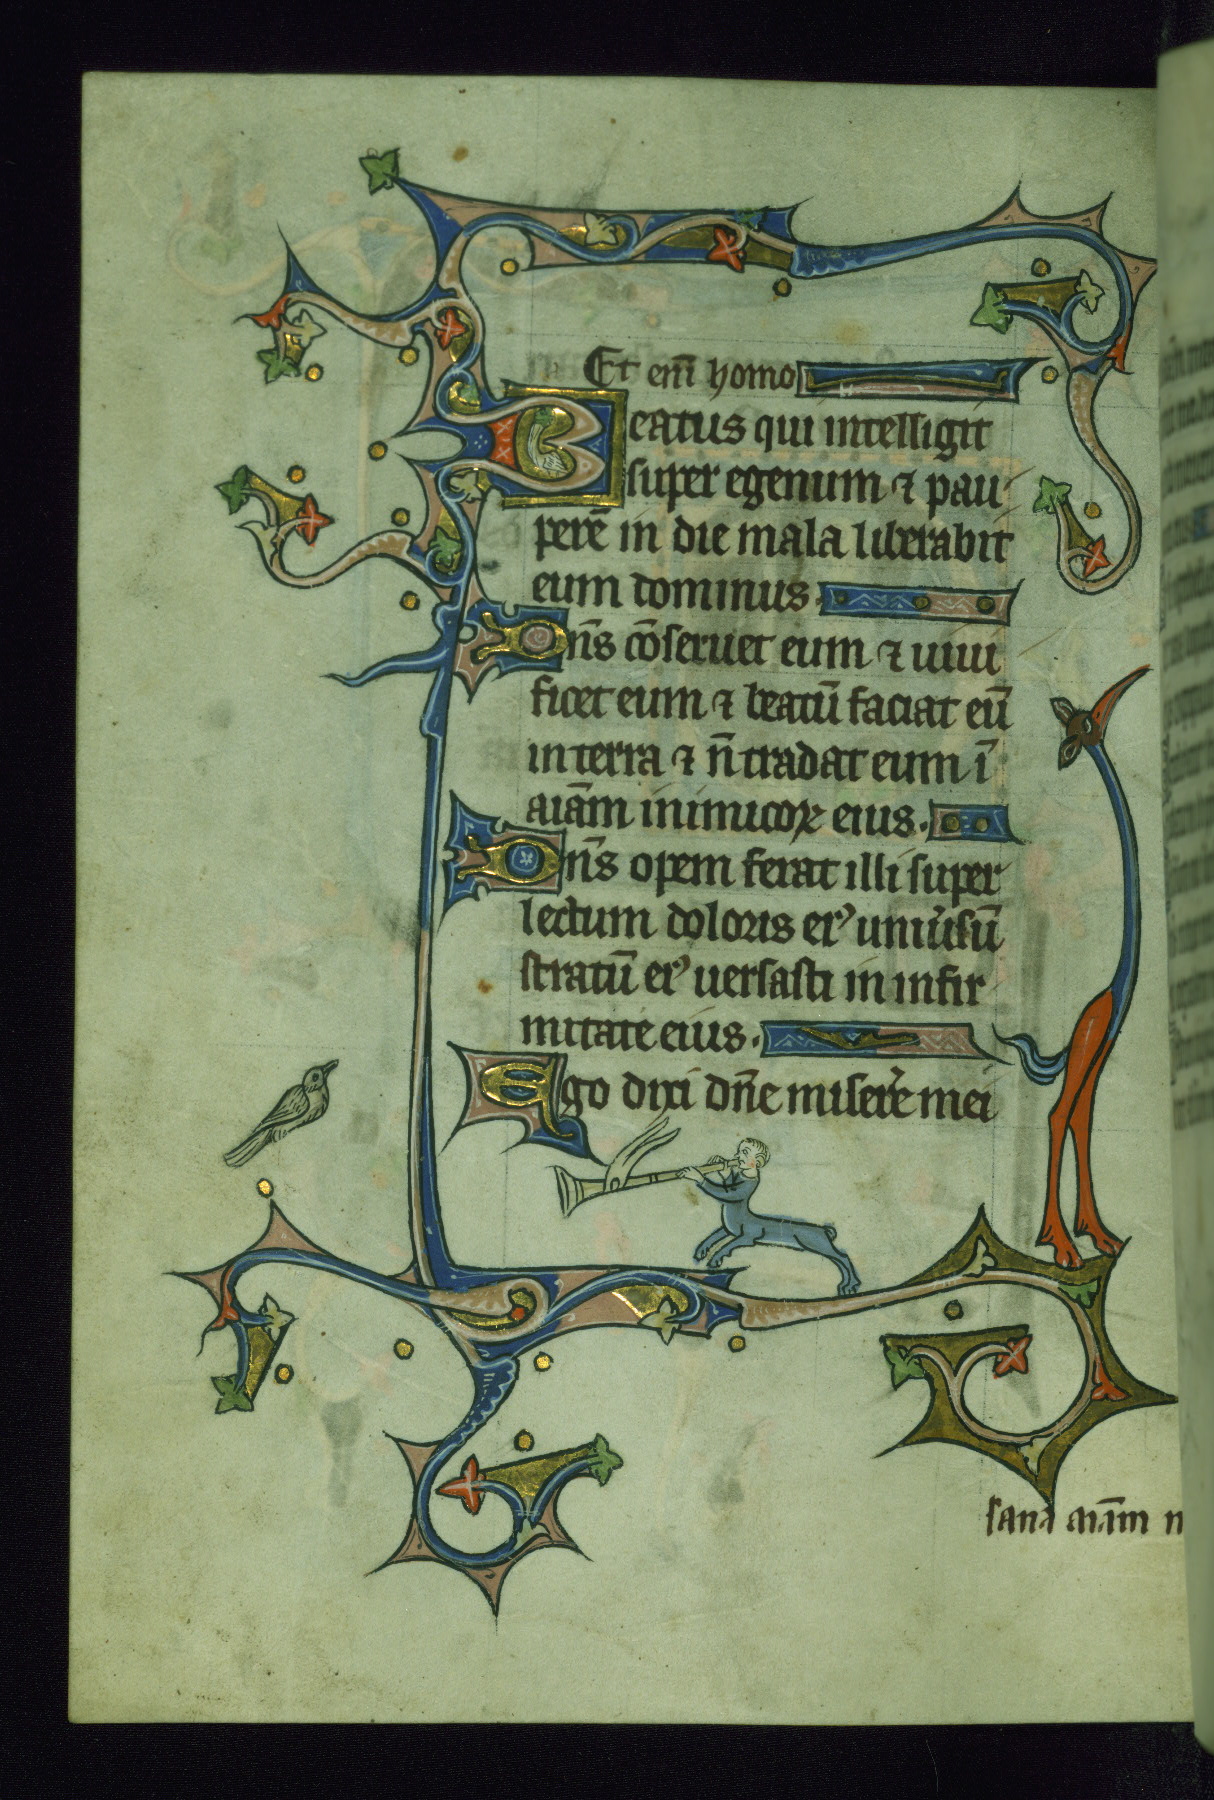 Et eni̅ homo
Beatus qui intelligit
super egenum ⁊ pau
pere̅ in die mala liberabit
eum dominus.
Dn̅s co̅seruet eum ⁊ uiui
ficet eum ⁊ beatu̅ faciat eu̅
in terra ⁊ n̅ tradat eum i̅
aia̅m inimicoꝝ eius.
Dn̅s opem ferat illi super
lectum doloris eiꝰ uniu̅su̅
stratu̅ eiꝰ uersasti in infir
mitate eius.
Ego dixi dn̅e misere̅ mei
sana aia̅m